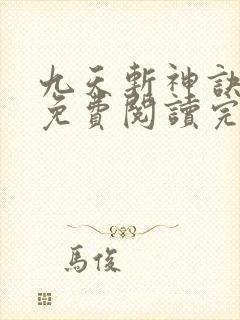 九天斬神訣
免費閱讀完
馬俊